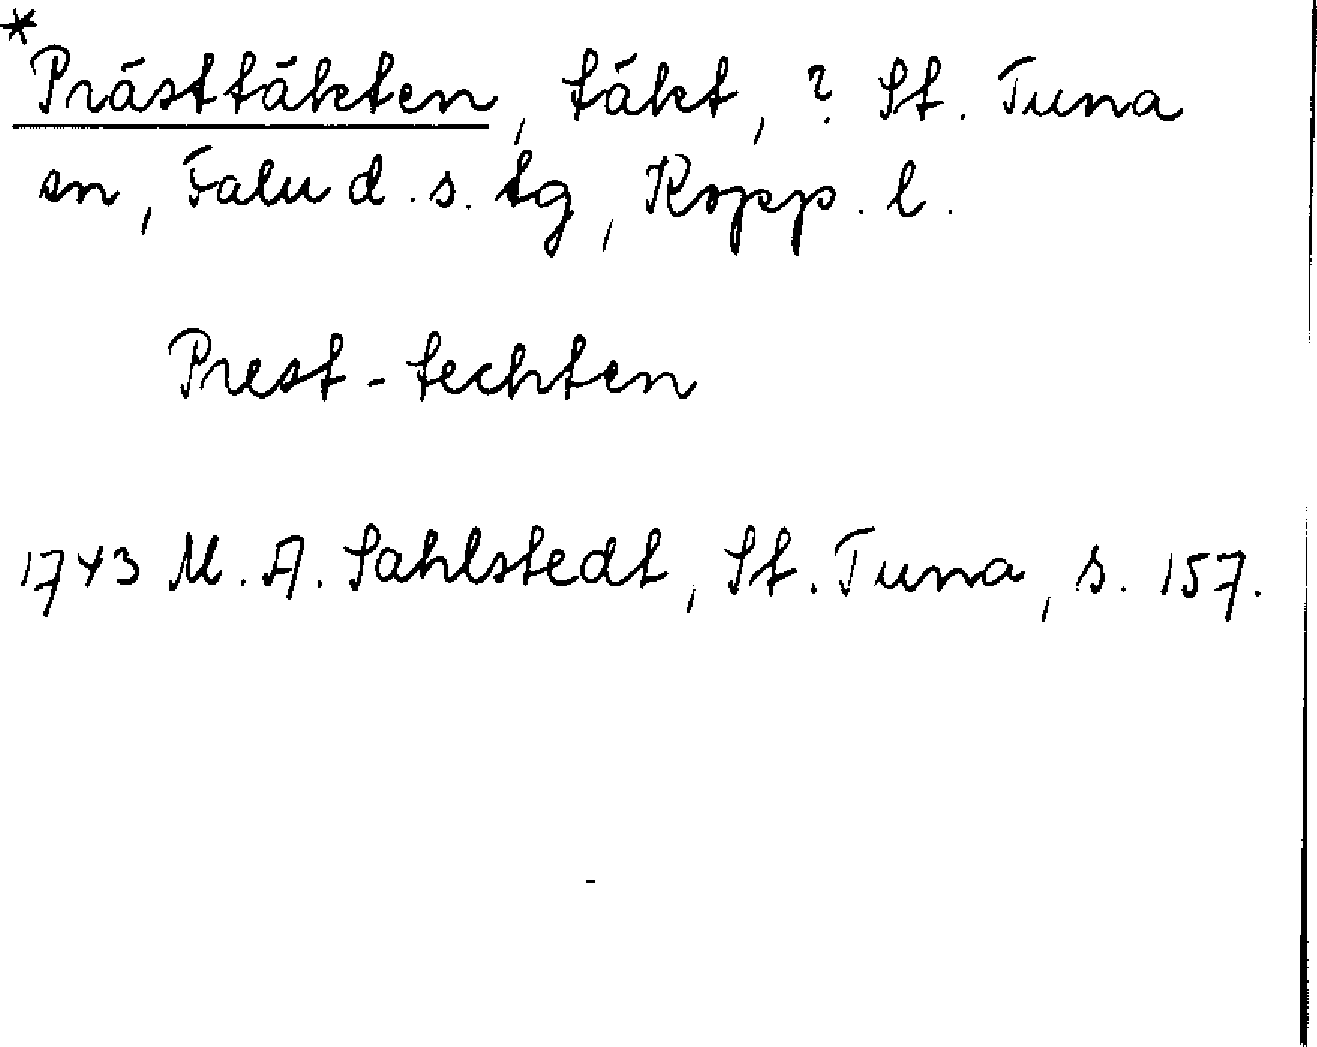 *
Prästtäkten, täkt, ? St. Tuna
sn, Falu d. s. tg, Kopp. l.
Prest-techten
1743 M. A. Sahlstedt, St. Tuna, s. 157.